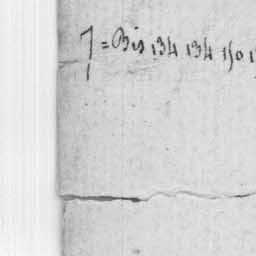 7 = Bis 134 134 150 1